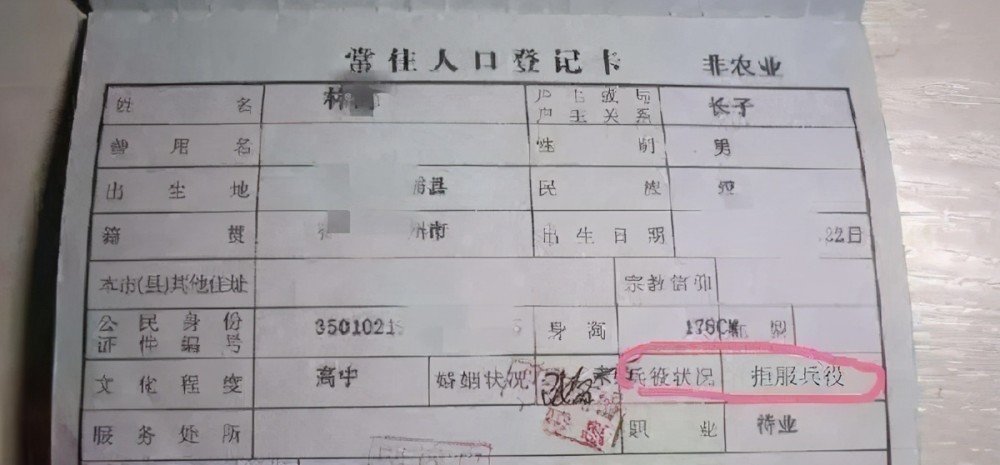 常住人口登记卡 非农业
姓名 林 户主或与 长子
户主关系
曾用名 性别 男
出生地 县 民族
籍贯 州南 出生日期 22日
本市(县)其他住址 宗教信仰
公民身份 3501021 身高 178CM
证件编号
文化程度 高中 婚姻状况 兵役状况 拒服兵役
服务处所 职业 待业